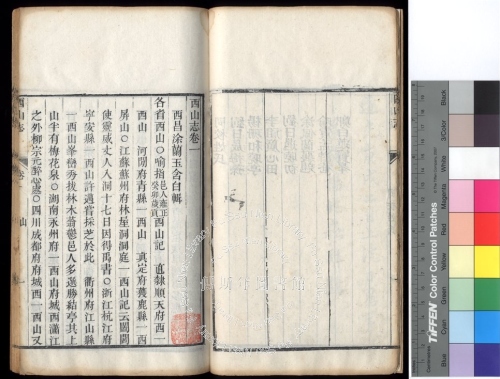 西山志卷一
西昌涂蘭玉含白輯
各省西山〇喻指 西山記 直隸順天府西一
西山 河間府青縣一西山 真定府獲鹿縣一西
屏山〇江蘇蘇州府林屋洞洞庭一西山記云闔閭
使靈威丈人入洞十七日因得禹書〇浙江杭江府
寧陵縣一西山許邁嘗採芝於此 衢州府江山縣
一西山峯巒秀拔林木蓊鬱邑人多選勝結亭其上
山半有梅花泉〇湖南永州府一西山府城西瀟江
之外柳宗元 〇四川成都府府城西一西山又
西山志 卷一 山
TIFFEN Color Control Patches
Blue
Cyan
Green
Yellow
Red
Magenta
White
3/Color
Black